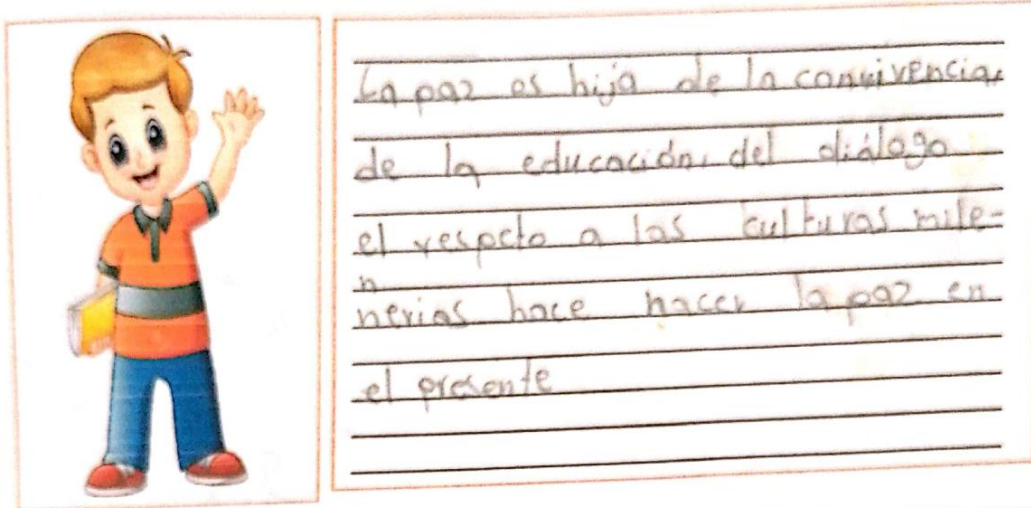 La paz es hija de la convivencia,
de la educación, del diálogo
el respcto a las culturas mile-
n
nerias hace nacer la paz en
el presente